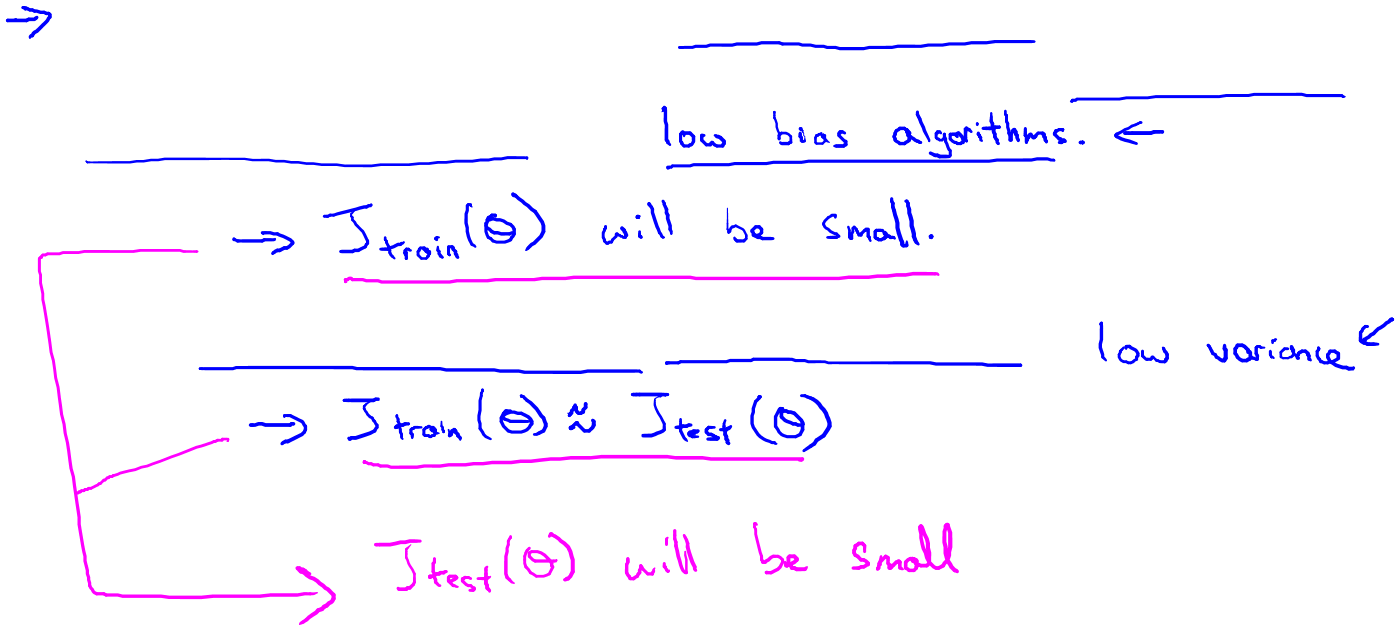 low bias algorithms. ←
→ J_train(Θ) will be small.
low variance ↙
→ J_train(Θ) ≈ J_test(Θ)
J_test(Θ) will be small